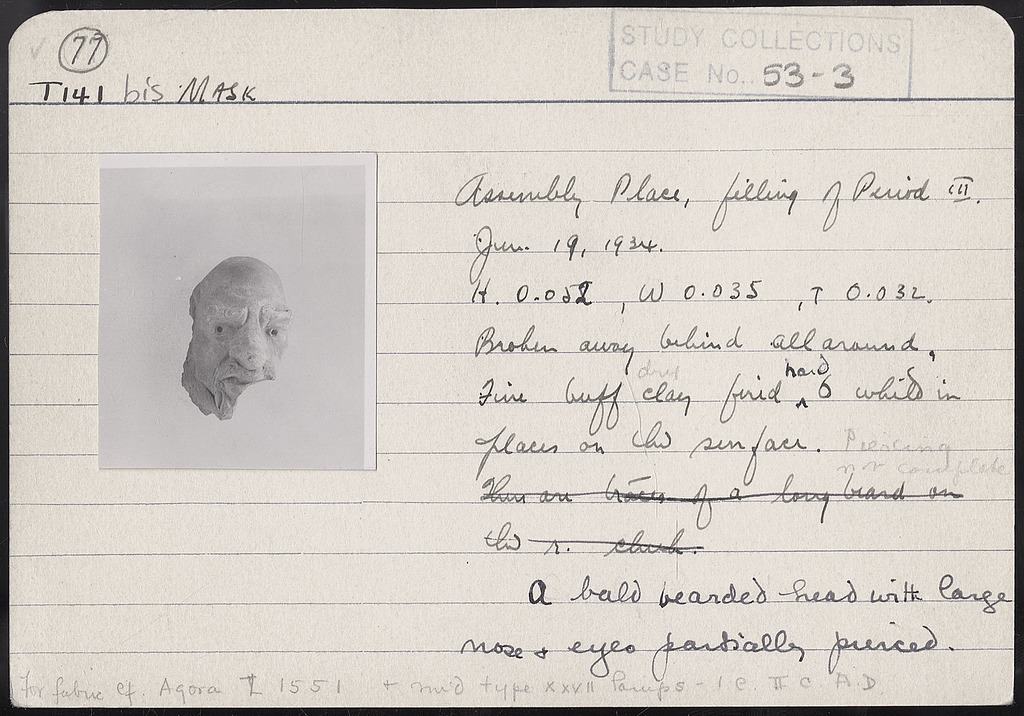 77
T141 bis MASK
STUDY COLLECTIONS
CASE No.. 53-3
Assembly Place, filling of Period III.
Jun. 19, 1934.
H. 0.052, W 0.035, T 0.032.
Broken away behind all around.
dry hard
Fine buff clay fired to white in
places on the surface. Piercing
not complete
There are traces of a long beard on
the r. cheek.
A bald bearded head with large
nose & eyes partially pierced.
For fabric cf. Agora L 1551 + mid type XXVII lamps - i.e. II c A.D